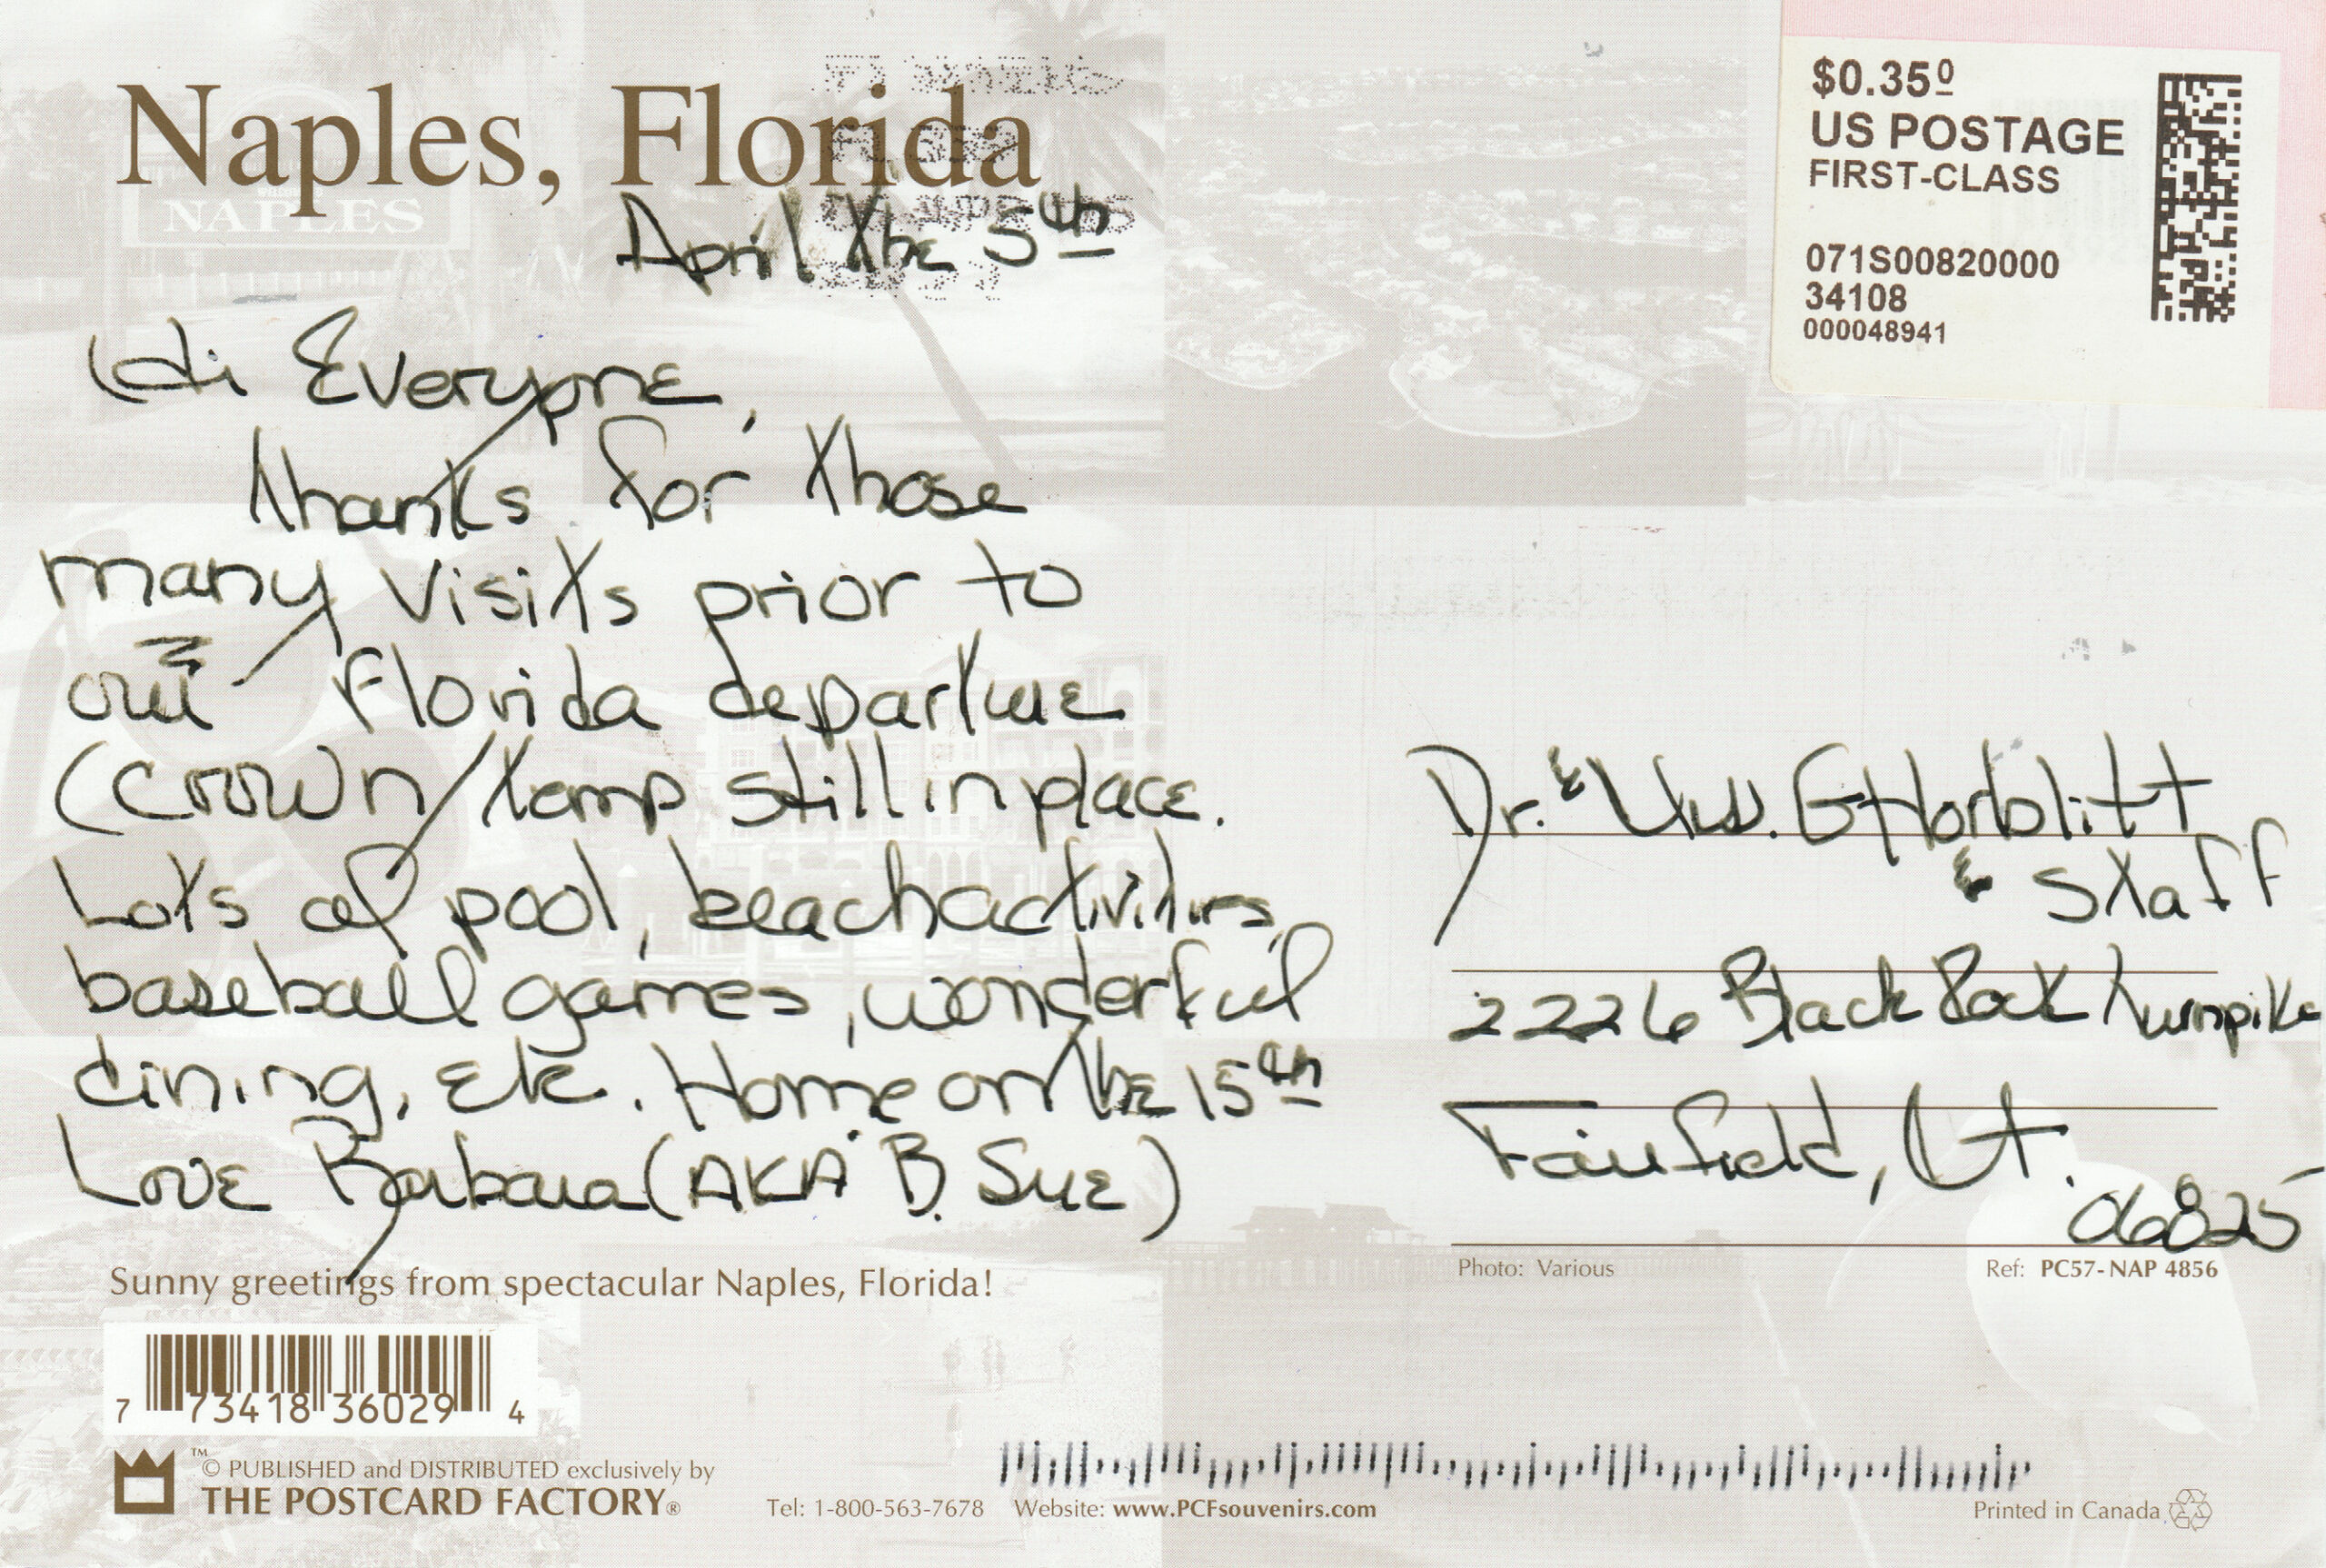 Naples, Florida
NAPLES
April the 5th
Hi Everyone,
thanks for those
many visits prior to
our Florida departure
(crown/temp still in place.
Lots of pool, beach activities,
baseball games, wonderful
dining, etc. Home on the 15th
Love Barbara (AKA B. Sue)
Sunny greetings from spectacular Naples, Florida!
7 73418 36029 4
™
© PUBLISHED and DISTRIBUTED exclusively by
THE POSTCARD FACTORY®
Tel: 1-800-563-7678 Website: www.PCFsouvenirs.com
$0.350
US POSTAGE
FIRST-CLASS
071S00820000
34108
000048941
Dr. & Horblitt
& Staff
2226 Black Rock Turnpike
Fairfield, Ct.
06825
Photo: Various Ref: PC57-NAP 4856
Printed in Canada